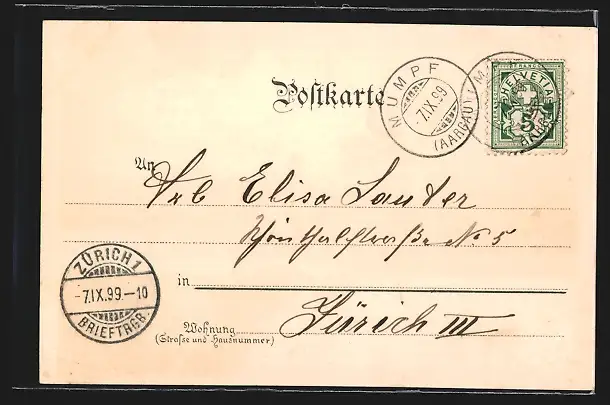 Postkarte
MUMPF
7.IX.99
(AARGAU)
HELVETIA
5
An
Elisa Sauter
No 5
ZÜRICH 1
-7.IX.99.-10
BRIEFTRGR.
in
Zürich III
Wohnung
(Strasse und Hausnummer)